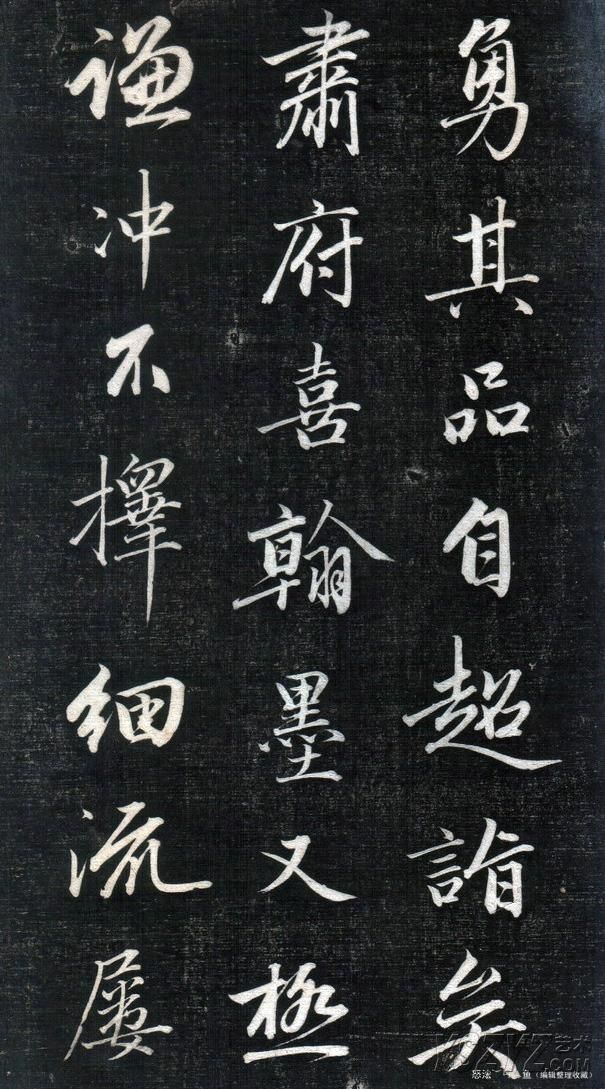 勇其品自超詣矣
肅府喜翰墨又極
謙冲不擇細流屢
（编辑整理收藏）